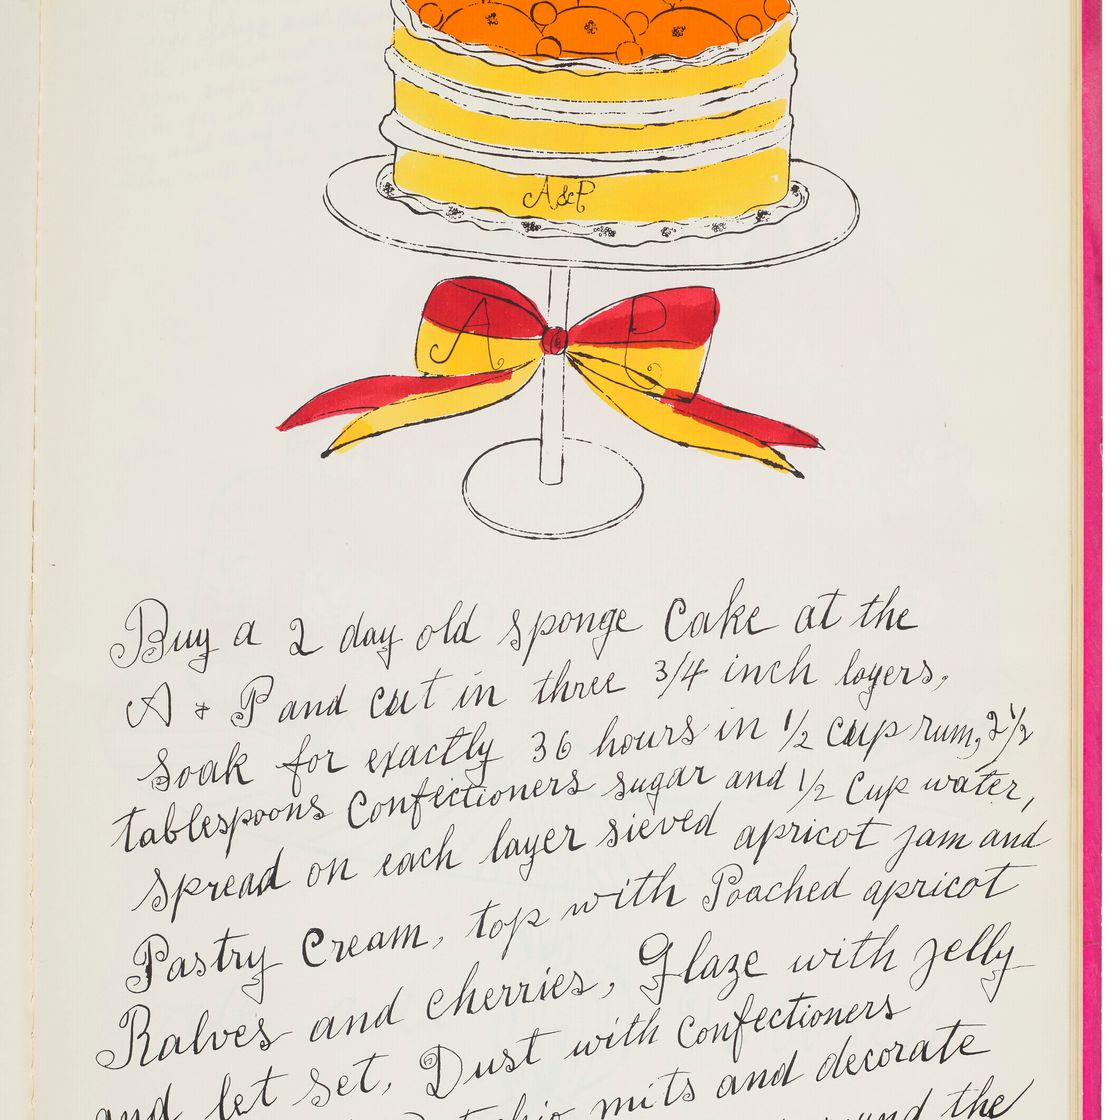 A&P
A P
Buy a 2 day old sponge Cake at the
A + P and cut in three 3/4 inch layers,
Soak for exactly 36 hours in 1/2 Cup rum, 2 1/2
tablespoons Confectioners sugar and 1/2 Cup water,
Spread on each layer sieved apricot jam and
Pastry Cream, top with Poached apricot
Ralves and cherries, Glaze with jelly
and let Set, Dust with Confectioners
nuts and decorate
around the